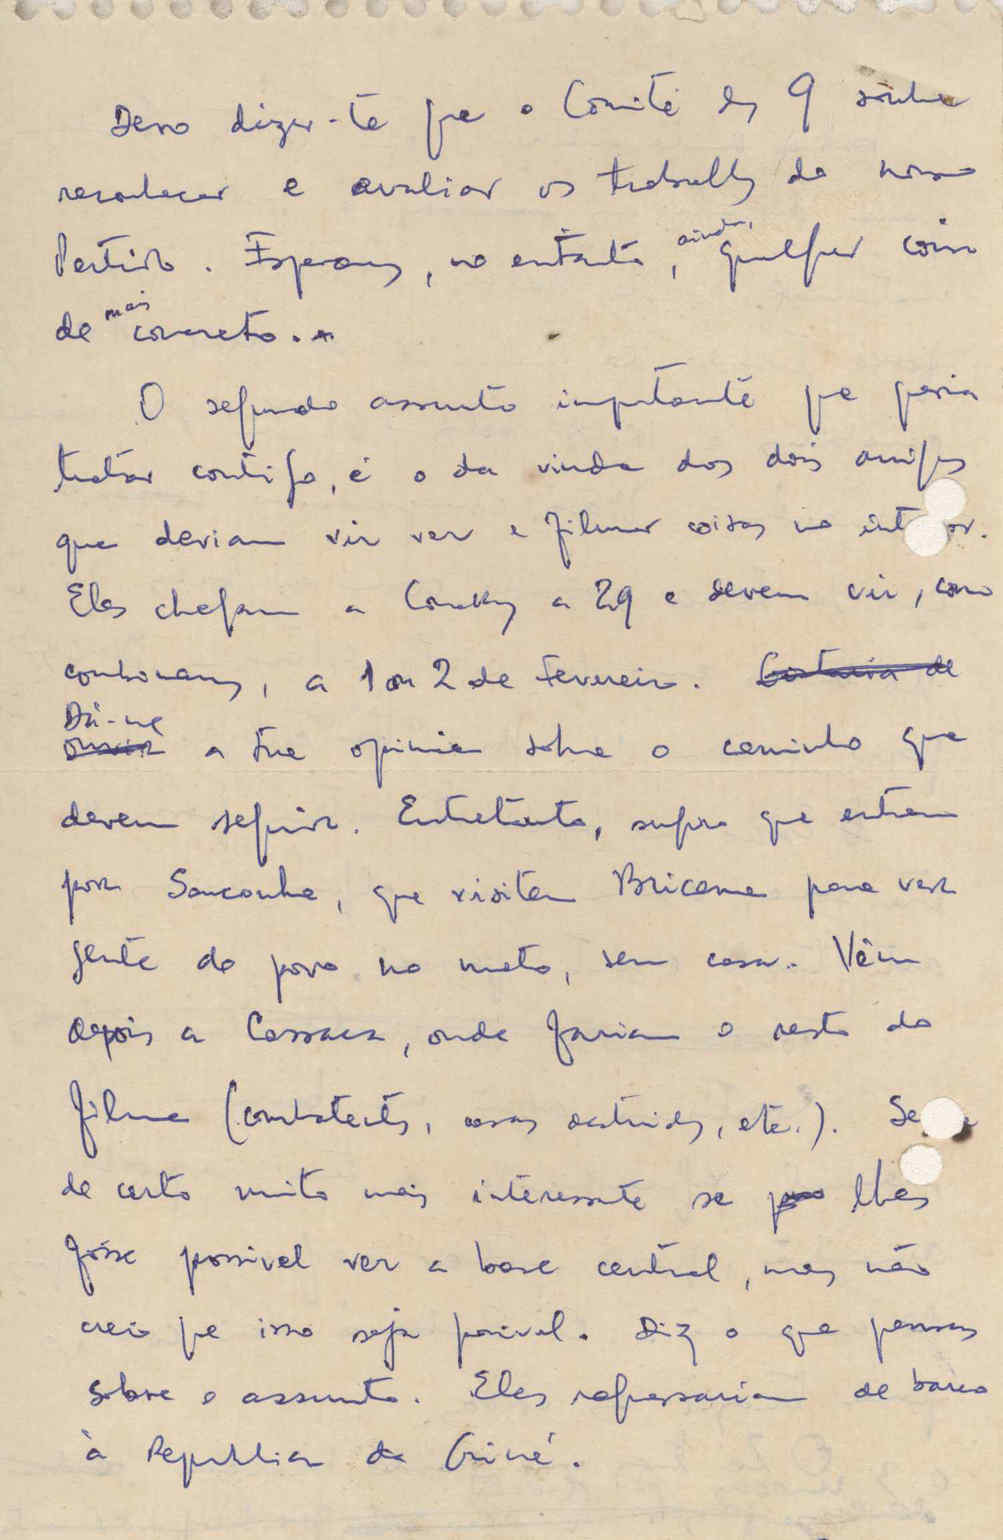 Devo dizer-te que o Comité dos 9 soube
reconhecer e avaliar os trabalhos do nosso
Partido. Esperamos, no entanto, ainda, qualquer coisa
de mais concreto.
O segundo assunto importante que queria
tratar contigo, é o da vinda dos dois amigos
que deviam vir ver e filmar coisas no int or.
Eles chegam a Conakry a 29 e devem vir, como
combinamos, a 1 ou 2 de Fevereiro. Gostaria de
Dá-me ouvir a tua opinião sobre o caminho que
devem seguir. Entretanto, sugiro que entrem
por Sanconha, que visitem Bricama para ver
gente do povo no mato, sem casa. Vêm
depois a Cassaca, onde fariam o resto do
filme (combatentes, casas destruidas, etc.). Se
de certo muito mais interessante se lhes
fôsse possivel ver a base central, mas não
creio que isso seja possivel. Diz o que pensas
sobre o assunto. Eles regressariam de barco
à Republica da Guiné.